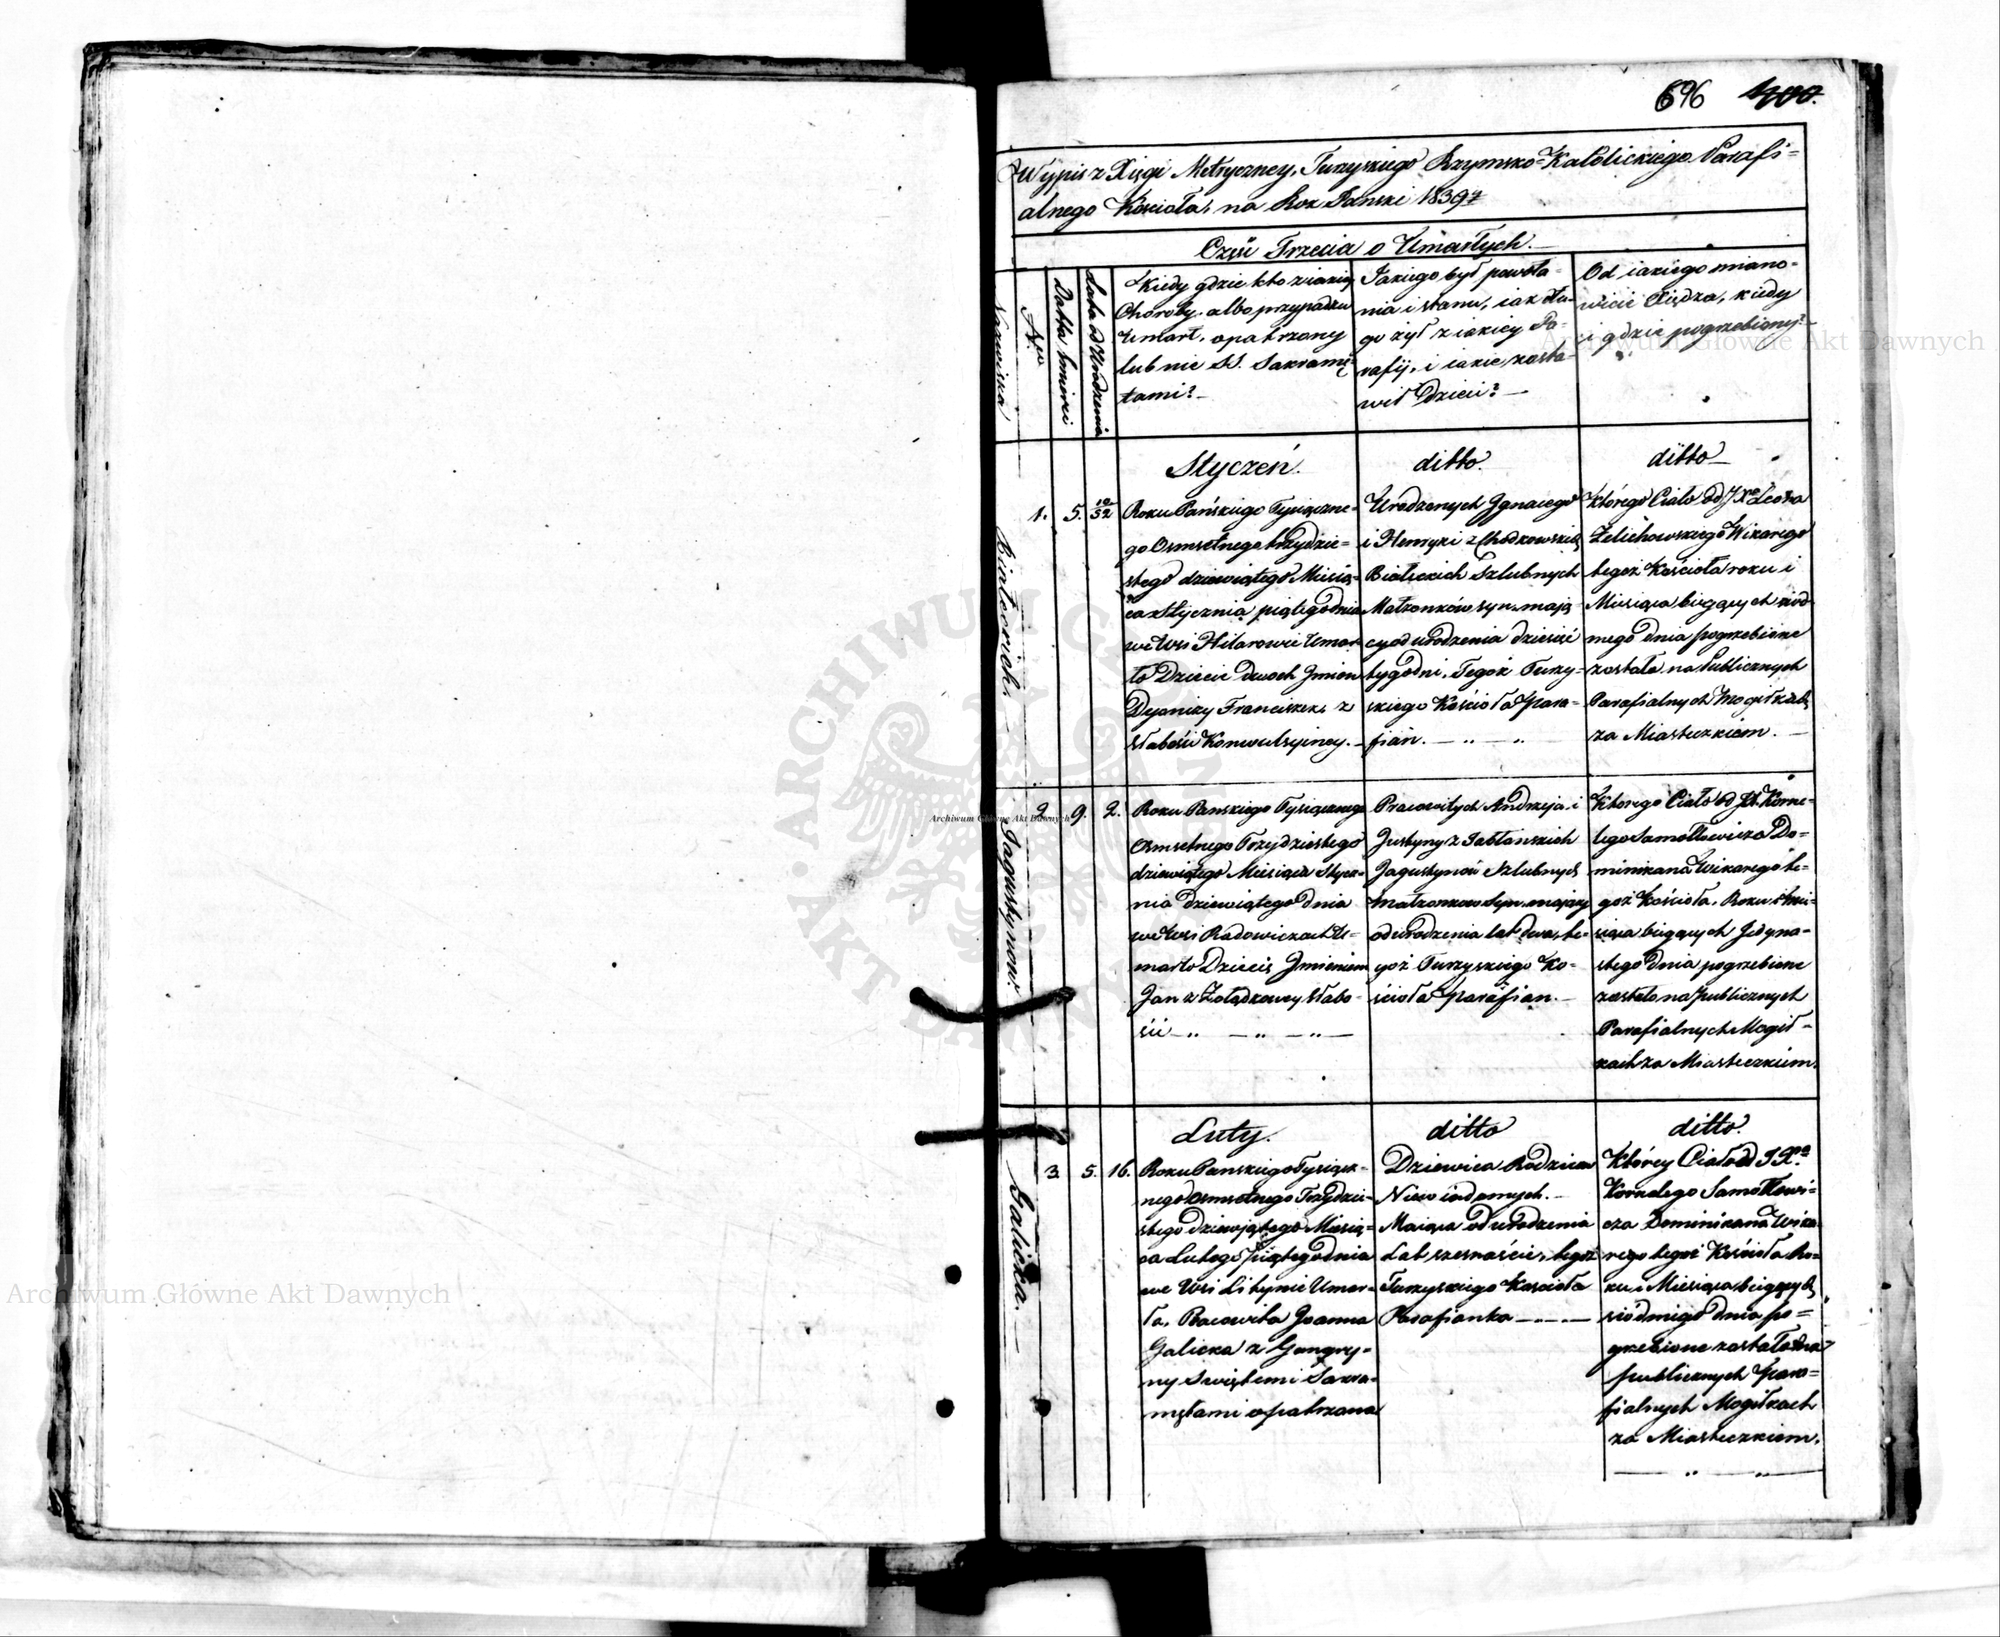 696 400.
Wypis z Xięgi Metryczney, Turzyskiego Rzymsko-Katolickiego Parafi-
alnego Kościoła, na Rok Panski 1839ty
Część Trzecia o Umarłych.
Nazwiska
Nro
Datta śmierci
Latta od Urodzenia
Kiedy gdzie kto z iakiey
Choroby, albo przypadku
Umarł, opatrzony
lub nie SS. Sakramę-
tami?
Jakiego był powoła-
nia i stanu, iak dłu-
go żył z iakiey Pa-
rafij, i iakie zosta-
wił Dzieci?
Od iakiego miano-
wicie Xiędza, kiedy
i gdzie pogrzebiony?
Styczeń.
ditto.
ditto
Białeckich.
1. 5. 10/52
Roku Pańskiego Tysiączne-
go Osmsetnego trzydzie-
stego dziewiątego Miesią-
ca Stycznia piątego dnia
we Wsi Hilarowie Umar-
ło Dziecie dwoch Jmion
Dyonizy Franciszek, z
słabości Konwulsyiney.
Urodzonych Jgnacego
i Henryki z Chodkowskich
Białeckich Szlubnych
Małżonków syn, mają-
cy od urodzenia dziesięć
tygodni, Tegoż Turzy-
skiego Kościoła Para-
fian.
którego Ciało od JXa Leona
Żelichowskiego Wikarego
tegoż Kościoła roku i
Miesiąca bieżących siód-
mego dnia pogrzebione
zostało na Publicznych
Parafialnych Mogiłkach
za Miasteczkiem.
Jagustynow.
2 9. 2.
Roku Panskiego Tysiącznego
Osmsetnego Trzydziestego
dziewiątego Miesiąca Stycz-
nia dziewiątego dnia
we Wsi Radowiczach U-
marło Dziecię Jmieniem
Jan z Żołądkowey słabo-
ści
Pracowitych Andrzeja i
Justyny z Jabłońskich
Jagustynów Szlubnych
małżonkow Syn, maiący
od urodzenia lat dwa, te-
goż Turzyskiego Ko-
ścioła Parafian.
Ktorego Ciało od JX. Korne-
lego Samotłowicza Do-
minikana Wikarego te-
goż Kościoła, Roku i Mie-
siąca bieżących Jedyna-
stego dnia pogrzebione
zostało na publicznych
Parafialnych Mogił-
kach za Miasteczkiem.
Luty.
ditto
ditto.
Galicka.
3 5. 16.
Roku Panskiego Tysiącz-
nego Osmsetnego Trzydzie-
stego dziewjątego Miesią-
ca Lutego piątego dnia
we Wsi Litynie Umar-
ła, Pracowita Joanna
Galicka z Gangry-
ny Swiętemi Sakra-
mętami opatrzona
Dziewica Rodzicow
Niewiadomych.
Maiąca od urodzenia
Lat szesnaście, tegoż
Turzyskiego Kościoła
Parafianka
Którey Ciało od JXa
Kornelego Samotłowi-
cza Dominikana Wika-
rego tegoż Kościoła Ro-
ku i Miesiąca bieżących
siodmego dnia po-
grzebione zostało na
publicznych Para-
fialnych Mogiłkach
za Miasteczkiem.
Archiwum Główne Akt Dawnych
Archiwum Główne Akt Dawnych
Archiwum Główne Akt Dawnych